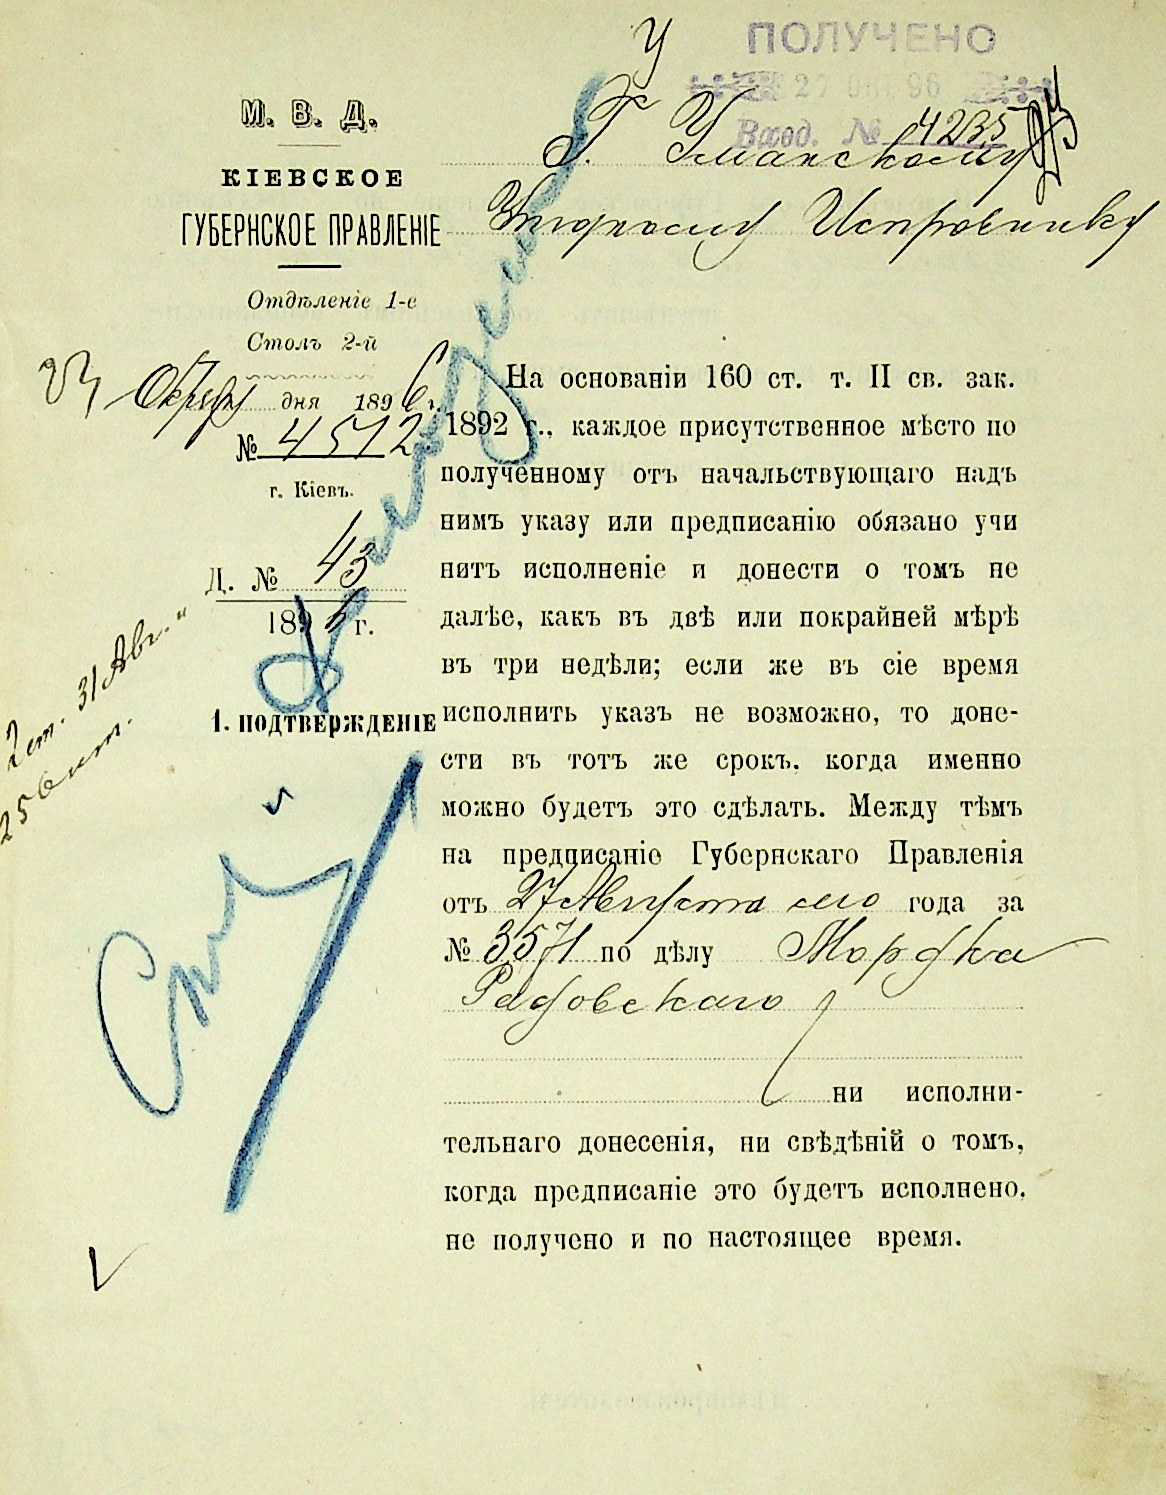 У
ПОЛУЧЕНО
27 ОКТ 96
Вход. № 4235
М. В. Д.
КІЕВСКОЕ
ГУБЕРНСКОЕ ПРАВЛЕНІЕ
Отдѣленіе 1-е
Столъ 2-й
23 Октября дня 1896 г.
№ 4512
г. Кіевъ.
Д. № 43
1896 г.
1. ПОДТВЕРЖДЕНІЕ
2 ст. 31 Авг.
Г. Уманскому
Уѣздному Исправнику
На основаніи 160 ст. т. II св. зак.
1892 г., каждое присутственное мѣсто по
полученному отъ начальствующаго надъ
нимъ указу или предписанію обязано учи
нить исполненіе и донести о томъ не
далѣе, какъ въ двѣ или покрайней мѣрѣ
въ три недѣли; если же въ сіе время
исполнить указъ не возможно, то доне-
сти въ тотъ же срокъ. когда именно
можно будетъ это сдѣлать. Между тѣмъ
на предписаніе Губернскаго Правленія
отъ 27 Августа сего года за
№ 3571 по дѣлу Мордка
Радовскаго
ни исполни-
тельнаго донесенія, ни свѣдѣній о томъ,
когда предписаніе это будетъ исполнено,
не получено и по настоящее время.